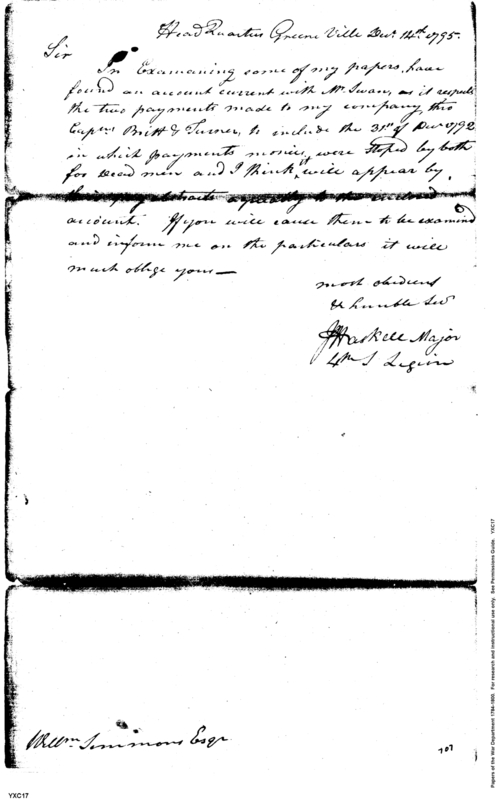 Head Quarters Greene Ville Decr. 14th 1795.
Sir
In Examaining some of my papers, have
found an account current with Mr. Swan, as it respects
the two payments made to my company, thro
Captns. Britt & Turner, to include the 31st of Decr 1792
in which payments monies were stoped by both
for dead men and I think it will appear by
their pay abstracts agreeably to the enclosed
account. If you will cause them to be examined
and inform me on the particulars it will
much oblige yours—
most obedient
& humble Servt
J Haskell Major
4th S Legion
Willm. Simmons Esqr
707
YXC17
Papers of the War Department 1784-1800. For research and instructional use only. See Permissions Guide. YXC17